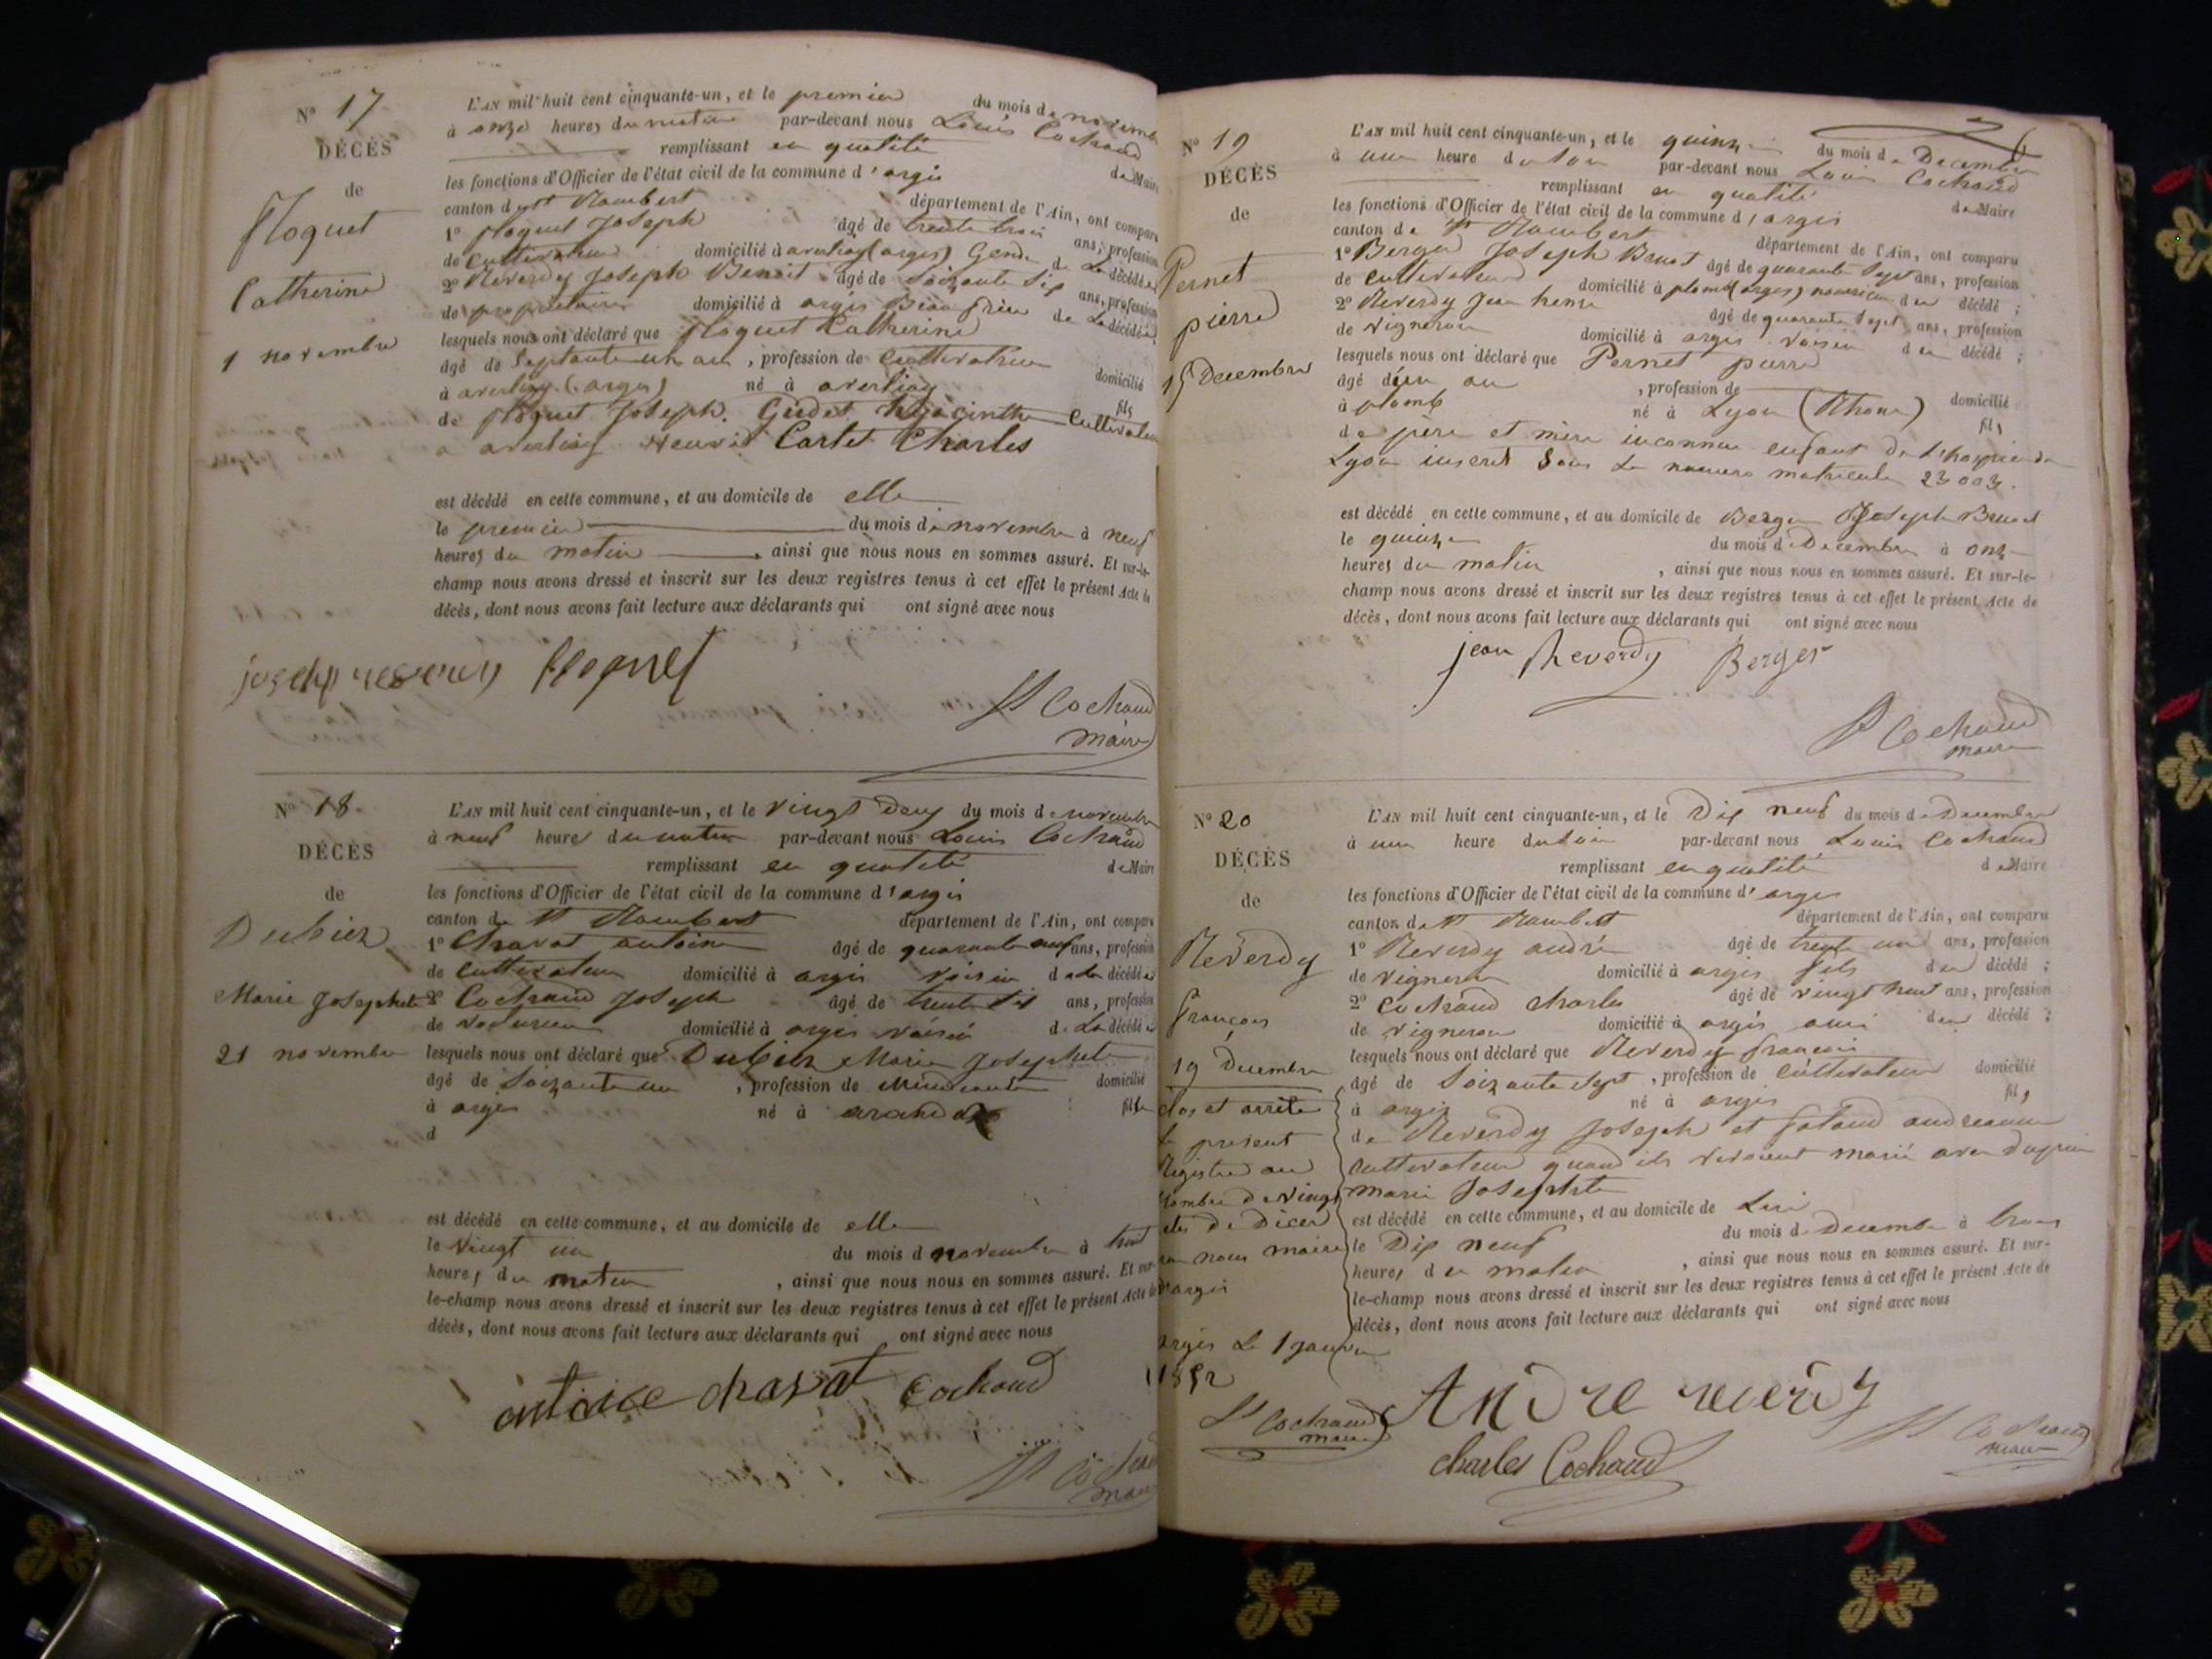 N° 17
DÉCÈS
de
floquet
Catherine
1 novembre
L'AN mil huit cent cinquante-un, et le premier du mois de novembre
à onze heures du matin par-devant nous Louis Cochaud
remplissant en qualité de Maire
les fonctions d'Officier de l'état civil de la commune d'argis
canton de St Rambert département de l'Ain, ont comparu
1° floquet Joseph âgé de trente trois ans, profession
de Cultivateur domicilié à averliaz (argis) Gendre de La décédée
2° Reverdy Joseph Benoit âgé de Soixante six ans, profession
de propriétaire domicilié à argis Beau frère de La décédée
lesquels nous ont déclaré que floquet Catherine
âgé de Septante un ans, profession de Cultivatrice domicilié
à averliaz (argis) né à averliaz fils
de floquet Joseph. Gudet hyacinthe Cultivateur
a averliaz Heuvie Carlet Charles
est décédé en cette commune, et au domicile de elle
le premier du mois de novembre à neuf
heures du matin, ainsi que nous nous en sommes assuré. Et sur-le-
champ nous avons dressé et inscrit sur les deux registres tenus à cet effet le présent Acte de
décès, dont nous avons fait lecture aux déclarants qui ont signé avec nous
joseph reverdy floquet
Ls Cochaud
maire
N° 18
DÉCÈS
de
Dubiez
Marie Josephete
21 novembre
L'AN mil huit cent cinquante-un, et le vingt deux du mois de novembre
à neuf heures du matin par-devant nous Louis Cochaud
remplissant en qualité de Maire
les fonctions d'Officier de l'état civil de la commune d'argis
canton de St Rambert département de l'Ain, ont comparu
1° Chavat antoine âgé de quarante neuf ans, profession
de cultivateur domicilié à argis voisin de la décédée
2° Cochaud Joseph âgé de trente six ans, profession
de voiturier domicilié à argis voisin de La décédée
lesquels nous ont déclaré que Dubiez Marie Josephete
âgé de Soixante un, profession de Mendiante domicilié
à argis né à arandas fille
d
est décédé en cette commune, et au domicile de elle
le vingt un du mois d novembre à huit
heures du matin, ainsi que nous nous en sommes assuré. Et sur-
le-champ nous avons dressé et inscrit sur les deux registres tenus à cet effet le présent Acte de
décès, dont nous avons fait lecture aux déclarants qui ont signé avec nous
antoice chavat Cochaud
Ls Cochaud
maire
N° 19
DÉCÈS
de
Pernet
pierre
15 Decembre
L'AN mil huit cent cinquante-un, et le quinze du mois de Decembre
à une heure du soir par-devant nous Louis Cochaud
remplissant en qualité de Maire
les fonctions d'Officier de l'état civil de la commune d'argis
canton de St Rambert département de l'Ain, ont comparu
1° Berger Joseph Benoit âgé de quarante Sept ans, profession
de cultivateur domicilié à plomb (argis) nourricier du décédé;
2° Reverdy Jean âgé de quarante Sept ans, profession
de vigneron domicilié à argis voisin du décédé;
lesquels nous ont déclaré que Pernet pierre
âgé d'un an, profession de domicilié
à plomb né à Lyon (Rhone) fils
de père et mère inconnu enfant de l'hospice de
Lyon inscrit Sous Le numero matricule 23003.
est décédé en cette commune, et au domicile de Berger Joseph Benoit
le quinze du mois de Decembre à onze
heures du matin, ainsi que nous nous en sommes assuré. Et sur-le-
champ nous avons dressé et inscrit sur les deux registres tenus à cet effet le présent Acte de
décès, dont nous avons fait lecture aux déclarants qui ont signé avec nous
jean Reverdy Berger
Ls Cochaud
maire
N° 20
DÉCÈS
de
Reverdy
françois
19 Decembre
clos et arrêté
Le present
Registre au
Nombre de vingt
de Décès
par nous maire
d'argis
argis Le 1 Janvier
1852
Ls Cochaud
maire
L'AN mil huit cent cinquante-un, et le Dix neuf du mois de Decembre
à une heure du soir par-devant nous Louis Cochaud
remplissant en qualité de Maire
les fonctions d'Officier de l'état civil de la commune d'argis
canton de St Rambert département de l'Ain, ont comparu
1° Reverdy andré âgé de trente un ans, profession
de vigneron domicilié à argis fils du décédé;
2° Cochaud charles âgé de vingt huit ans, profession
de vigneron domicilié à argis ami du décédé;
lesquels nous ont déclaré que Reverdy françois
âgé de Soixante Sept, profession de cultivateur domicilié
à argis né à argis fils
de Reverdy Joseph et andreanne
cultivateur quand ils vivoient marié avec Dupuis
marie Josephte
est décédé en cette commune, et au domicile de Lui
le Dix neuf du mois de Decembre à trois
heures du matin, ainsi que nous nous en sommes assuré. Et sur-
le-champ nous avons dressé et inscrit sur les deux registres tenus à cet effet le présent Acte de
décès, dont nous avons fait lecture aux déclarants qui ont signé avec nous
ANDRE reverdy
charles Cochaud
Ls Cochaud
maire